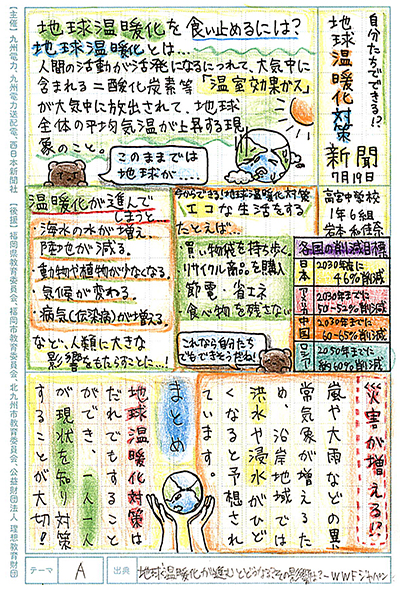 自分たちでできる!?
地球温暖化対策
新聞
7月19日
高宮中学校
1年6組
岩本和佳奈
地球温暖化を食い止めるには?
地球温暖化とは…
人間の活動が活発になるにつれて、大気中に
含まれる二酸化炭素等「温室効果ガス」
が大気中に放出されて、地球
全体の平均気温が上昇する現
象のこと。
このままでは
地球が…
各国の削減目標
日本
2030年度に
46%削減
アメリカ
2030年までに
50~52%削減
中国
2030年までに
60~65%削減
ロシア
2050年までに
約60%削減
今からできる!地球温暖化対策
エコな生活をする
たとえば…
・買い物袋を持ち歩く。
・リサイクル商品を購入
・節電・省エネ
・食べ物を残さない
これなら自分たち
でもできそうだね!
温暖化が進んで
しまうと…
・海水の水が増え、
陸地が減る。
・動物や植物が少なくなる。
・気候が変わる。
・病気(伝染病)が増える。
など、人類に大きな
影響をもたらすことに…!
災害が増える!?
嵐や大雨などの異
常気象が増えるた
め、沿岸地域では
洪水や浸水がひど
くなると予想され
ています。
まとめ
地球温暖化対策は
だれでもすること
ができ、一人一人
が現状を知り対策
することが大切!
テーマ
A
出典
地球温暖化が進むとどうなる?その影響は?~WWFジャパン
【主催】九州電力、九州電力送配電、西日本新聞社 【後援】福岡県教育委員会、福岡市教育委員会、北九州市教育委員会、公益財団法人 理想教育財団